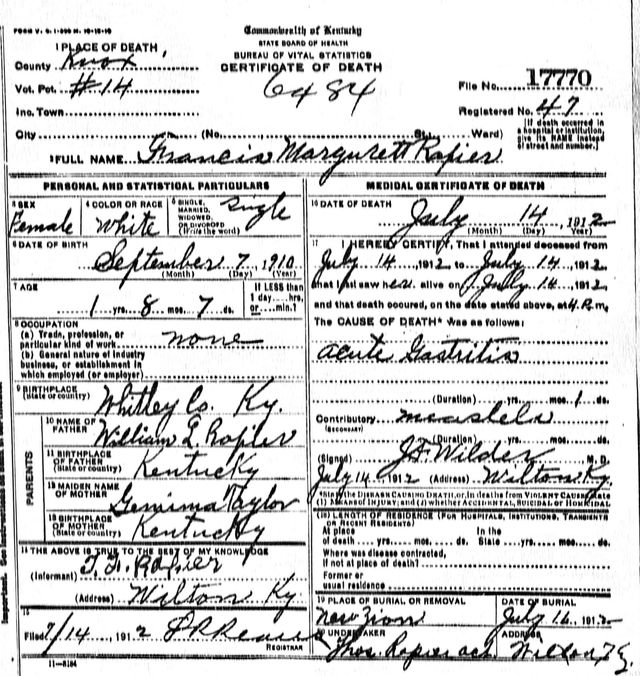 FORM V. S. 1-
Commonwealth of Kentucky
STATE BOARD OF HEALTH
BUREAU OF VITAL STATISTICS
CERTIFICATE OF DEATH
1 PLACE OF DEATH
County Knox
Vot. Pct. #14
6484
File No. 17770
Ino. Town
Registered No. 47
City (No. St. Ward)
[If death occurred in a hospital or institution, give its NAME instead of street and number.]
2 FULL NAME Francis Margurett Rapier
PERSONAL AND STATISTICAL PARTICULARS
3 SEX
Female
4 COLOR OR RACE
White
5 SINGLE, MARRIED, WIDOWED OR DIVORCED (Write the word)
Single
6 DATE OF BIRTH
September 7, 1910
(Month) (Day) (Year)
7 AGE
1 yrs. 8 mos. 7 ds.
If LESS than 1 day....hrs. or....min.?
8 OCCUPATION
(a) Trade, profession, or particular kind of work none
(b) General nature of industry business, or establishment in which employed (or employer)
9 BIRTHPLACE
(State or country)
Whitley Co. Ky.
PARENTS
10 NAME OF FATHER
William L Rapier
11 BIRTHPLACE OF FATHER
(State or country)
Kentucky
12 MAIDEN NAME OF MOTHER
Gemima Taylor
13 BIRTHPLACE OF MOTHER
(State or country)
Kentucky
14 THE ABOVE IS TRUE TO THE BEST OF MY KNOWLEDGE
(Informant) Rapier
(Address) Wilton Ky
15
Filed 7/14, 1912
REGISTRAR
11-8184
MEDICAL CERTIFICATE OF DEATH
16 DATE OF DEATH
July 14, 1912
(Month) (Day) (Year)
17 I HEREBY CERTIFY, That I attended deceased from
July 14, 1912 to July 14, 1912
that I last saw her alive on July 14, 1912
and that death occured, on the date stated above, at 4 P.m.
The CAUSE OF DEATH* was as follows:
acute Gastritis
(Duration) yrs. mos. 1 ds.
Contributory measels
(SECONDARY)
(Duration) yrs. mos. ds.
(Signed) J.F. Wilder M. D.
July 14, 1912 (Address) Wilton Ky.
State the DISEASE CAUSING DEATH, or, in deaths from VIOLENT CAUSES state (1) MEANS OF INJURY; and (2) whether ACCIDENTAL, SUICIDAL or HOMICIDAL
(18) LENGTH OF RESIDENCE (FOR HOSPITALS, INSTITUTIONS, TRANSIENTS OR RECENT RESIDENTS)
At place of death yrs. mos. ds.
In the State yrs. mos. ds.
Where was disease contracted, if not at place of death?
Former or usual residence
19 PLACE OF BURIAL OR REMOVAL
New Zion
DATE OF BURIAL
July 16, 1912
20 UNDERTAKER
Thos. Rapier
ADDRESS
Wilton Ky
Important.